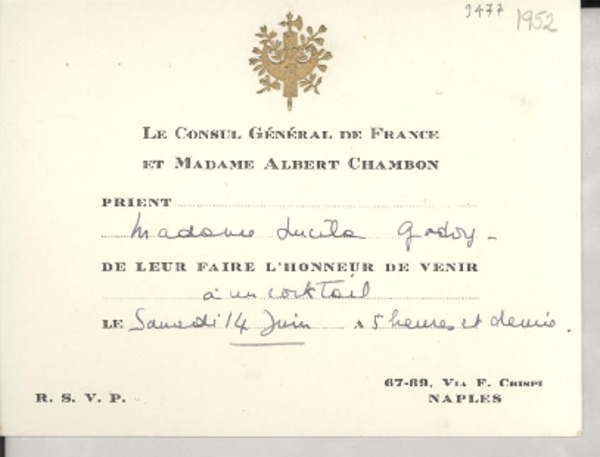 9477 1952
LE CONSUL GÉNÉRAL DE FRANCE
ET MADAME ALBERT CHAMBON
PRIENT
Madame Lucila Godoy -
DE LEUR FAIRE L'HONNEUR DE VENIR
à un cocktail
LE Samedi 14 Juin A 5 heures et demie.
67-69, VIA F. CRISPI
R. S. V. P. NAPLES